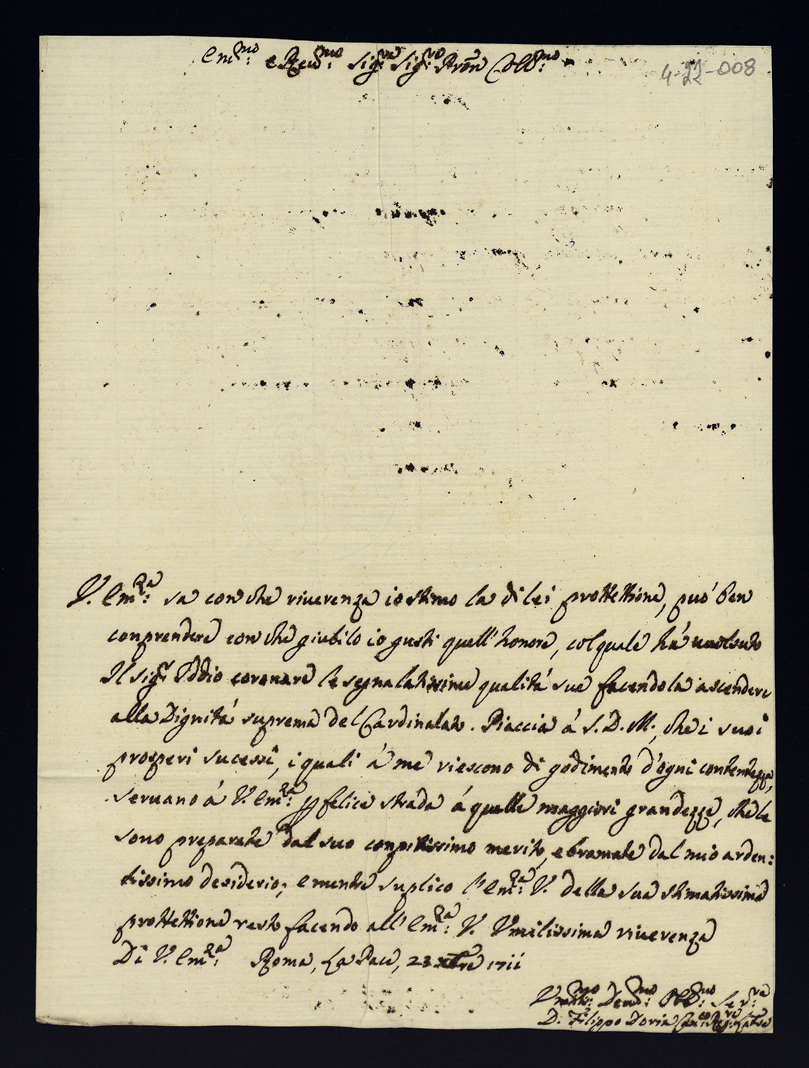 Em:mo e Reu:mo Sig:re Sig:re Pron Coll:mo
4-22-008
V. Em:za sa con che riuerenza io stimo la di lei prottettione, può ben
conprendere con che giubilo io gusti quell'honore, col quale há uoolsuto
Il Sig:r Iddio coronare le segnalatissime qualitá sue facendola ascendere
alla Dignitá suprema del Cardinalato. Piaccia á S. D. M. che i suoi
prosperi sucessi, i quali á me riescono di godimento d'ogni contentezza,
seruano á V. Em:za p felice strada á quelle maggiori grandezze, che le
sono preparate dal suo conpitissimo merito, e bramate dal mio arden:
tissimo desiderio; e mentre suplico l'Em:za V. della sua stimatissima
prottettione resto facendo all'Em:za V. Vmilissima riuerenza
Di V. Em:za Roma, La Pace, 23 xbre 1711
Vmil:mo Deu:mo Obl:mo Se:re
D. Filippo Doria Can:co Reg:re Later